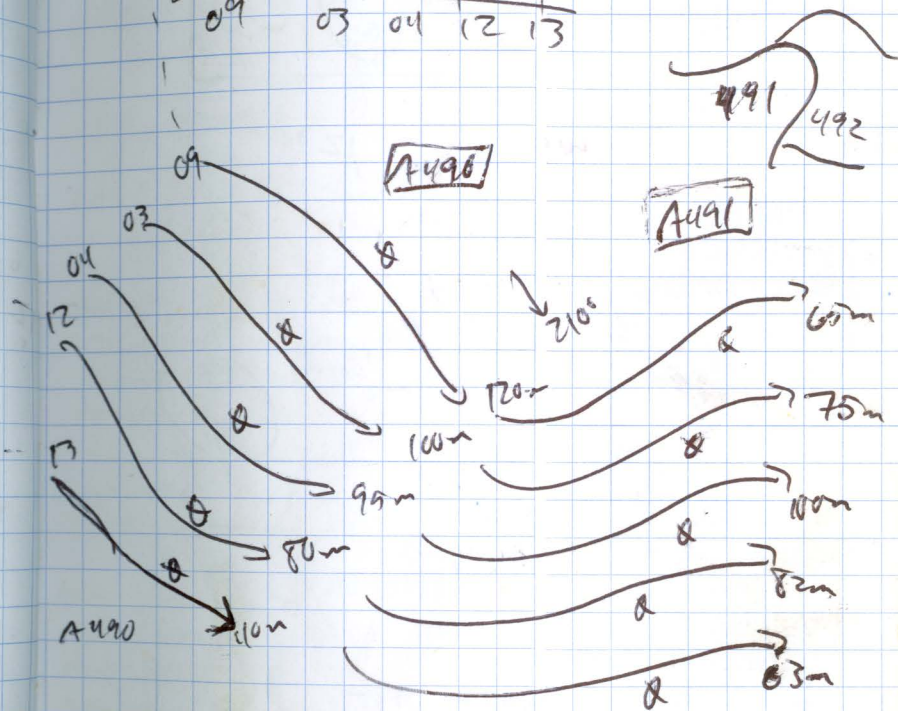 09 03 04 12 13
491
492
A490
A491
09
03
04
12
13
210°
120m
100m
80m
110m
A490
75m
100m
82m
63m